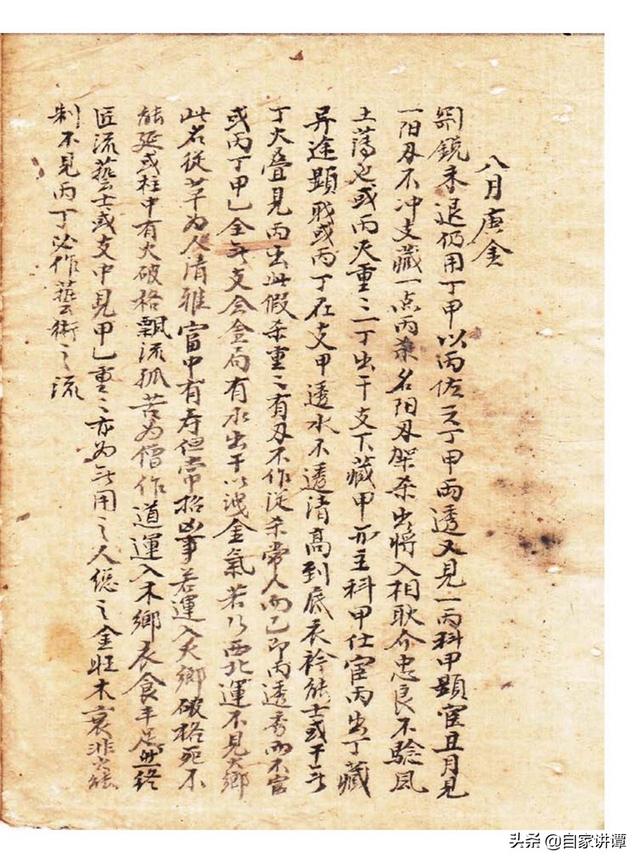 八月庚金
剛鋭未退仍用丁甲以丙佐之丁甲兩透又見一丙科甲顕宦且月見
一阳刃不冲支藏一点丙杀名阳刃架杀出将入相耿介忠良不騐風
土薄之或丙火重々一丁出干支下藏甲亦主科甲仕宦丙出丁藏
异途顕戝或丙丁在支甲透水不透清高到底衣衿能士或干
丁火叠見丙出此假杀重々有刃不作従杀常人而已即丙透秀而不官
或丙丁甲乙全无支会金局有水出干以洩金氣若行西北運不見火鄉
此名従革為人清雅富中有寿但常招凶事若運入火鄉破格死不
能延或柱中有火破格飄流孤苦為僧作道運入木鄉衣食丰足終
匠流藝士或支中見甲乙重々亦为无用之人総之金旺木衰非火能
制不見丙丁必作藝術之流
头条 @自家讲谭